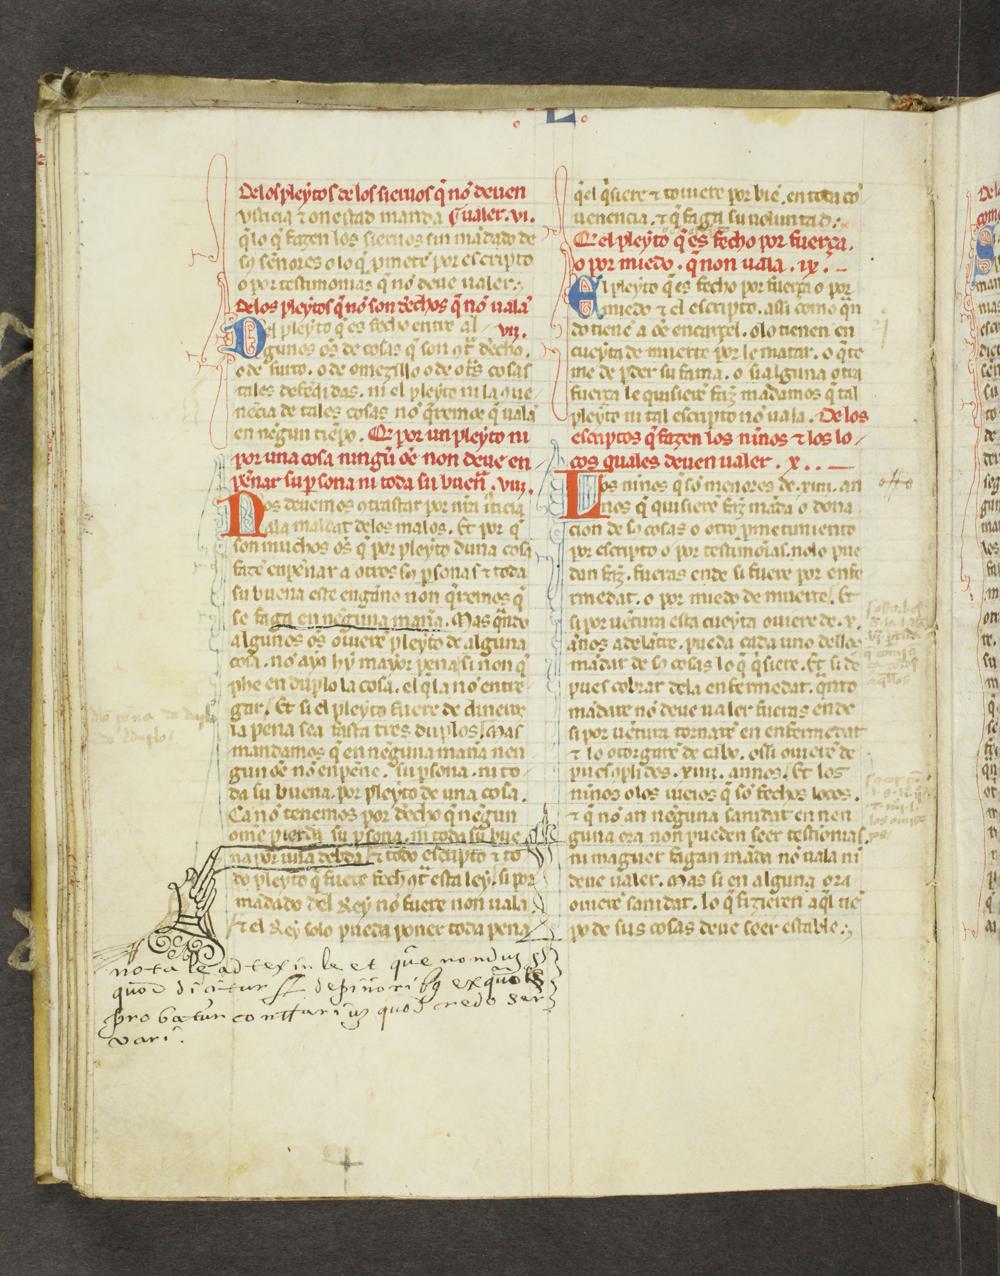 L
Delos pleẏtos de los sieruos q̃ nõ deuen
Vsticia ⁊ onestad manda ualer. vi.
q̃ lo q̃ fazen los sieruos sin mãdado de
sꝯ señores o lo q̃ ꝓmetẽ por escripto
o por testimonias q̃ nõ deue ualer.
Delos pleẏtos q̃ nõ son dechos q̃ nõ ualã
Del pleẏto q̃ es fecho entre al vii.
gunos oẽs de cosas q̃ son ꝯtra decho.
o de furto. o de omezillo o de ots̃ cosas
tales defẽdidas. ni el pleẏto ni la aue
nẽcia de tales cosas nõ q̃remos q̃ uala
en nẽgun tiẽpo. Q̃ por un pleẏto ni
por una cosa ningũ oẽ non deue en
peñar su ꝑsona ni toda su buena. viii.
Nos deuemos ꝯtrastar por nr̃a iusticia
ala maldat delos malos. Et por q̃
son muchos oẽs q̃ por pleẏto duna cosa
fazẽ enpeñar a otros sꝯ ꝑsonas ⁊ toda
su buena este engãno non q̃remos q̃
se faga en nẽguna mañã. Mas q̃ndo
algunos oẽs ouierẽ pleẏto de alguna
cosa. nõ aẏa hẏ maẏor pena si non q̃
peche en duplo la cosa. el q̃ la nõ entre
gar. Et si el pleẏto fuere de dineros
la pena sea fasta tres duplos. Mas
mandamos q̃ en nẽguna mañã nen
gun oẽ nõ enpeñe. su ꝑsona. ni to
da su buena. por pleẏto de una cosa.
Ca nõ tenemos por decho q̃ nẽgun
ome pierda su ꝑsona. ni toda su bue
na por una debda. Et todo escripto ⁊ to
do pleẏto q̃ fuere fech ꝯtra esta leẏ. si por
mãdado del Reẏ nõ fuere non uala.
Et el Reẏ solo pueda poner toda pena
q̃ el q̃siere ⁊ touiere por biẽ. en toda cõ
uenencia. ⁊ q̃ faga su uoluntad.
Q̃ el pleẏto q̃ es fecho por fuerça.
o por miedo. q̃ non uala. ix.
El pleẏto q̃ es fecho por fuerça o por
miedo ⁊ el escripto. assi como q̃n
do tiene a oẽ en carcel. o lo tienen en
cueẏta de muerte por le matar. o q̃ te
me de ꝑder su fama. o si alguna otra
fuerça le quisierẽ faz̃ mãdamos q̃ tal
pleẏto ni tal escripto nõ uala. De los
escriptos q̃ fazen los niños ⁊ los lo
cos quales deuen ualer. x.
Los niños q̃ sõ menores de. xiiii. an
ños q̃ quisierẽ faz̃ mãda o dona
cion de sꝯ cosas o otro ꝓmetimiento
por escripto o por testimoias. nolo pue
dan faz̃. fueras ende si fuere por enfe
rmedat. o por miedo de muerte. Et
si por uẽtura esta cueẏta ouierẽ de. x.
años adelãtre. pueda cada uno dellos
mãdar de sꝯ cosas lo q̃ q̃siere. Et si de
pues cobrar dela enfermedat. q̃nto
mãdare nõ deue ualer fueras ende
si por uẽtura tornare en enfermedat
⁊ lo otorgare de cabo. ossi ouiere de
pues ꝯplidos. xiiii. annos. Et los
niños o los uieios q̃ sõ fechos locos.
⁊ q̃ nõ an nẽguna sanidat en nen
guna ora non pueden seer testionias.
ni maguer fagan mãda nõ uala ni
deue ualer. Mas si en alguna ora
ouiere sanidat. lo q̃ fizieren aq̃l tiẽ
po de sus cosas deue seer estable.
nota le ad tex in le et
quod dicitur
probatur contrarium quod credo ser
vari.